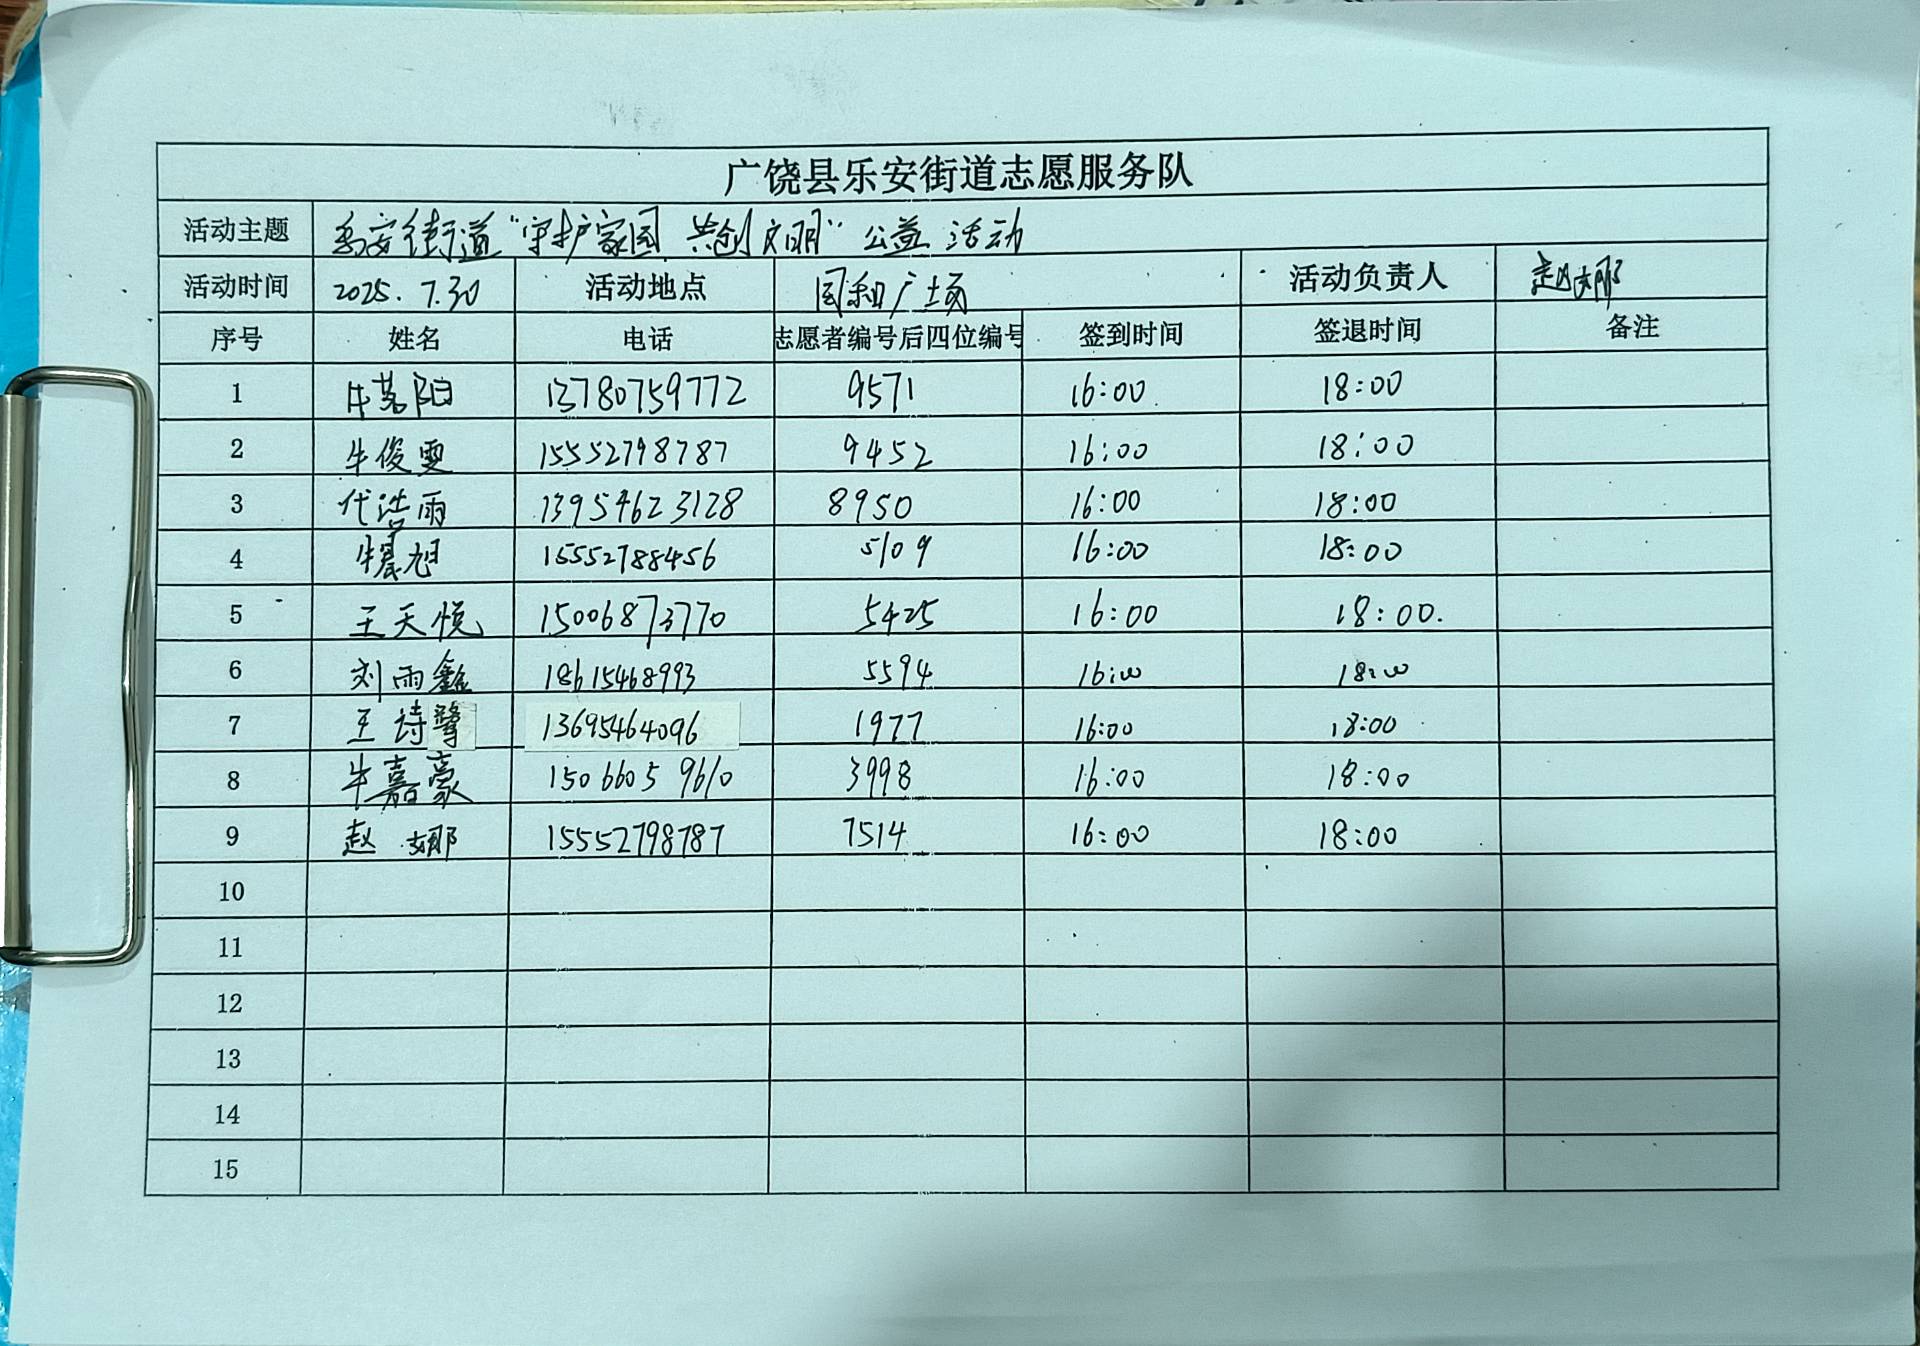 广饶县乐安街道志愿服务队
活动主题 乐安街道“守护家园 共创文明”公益活动
活动时间 2025.7.30 活动地点 国和广场 活动负责人 赵娜
序号 姓名 电话 志愿者编号后四位编号 签到时间 签退时间 备注
1 牛茗阳 13780759772 9571 16:00 18:00
2 牛俊雯 15552798787 9452 16:00 18:00
3 代浩雨 13954623128 8950 16:00 18:00
4 牛晨旭 15552788456 5109 16:00 18:00
5 王天悦 15006873770 5425 16:00 18:00.
6 刘雨鑫 18615468993 5594 16:00 18:00
7 王诗鹭 13695464096 1977 16:00 18:00
8 牛嘉豪 15066059610 3998 16:00 18:00
9 赵娜 15552798787 7514 16:00 18:00
10
11
12
13
14
15